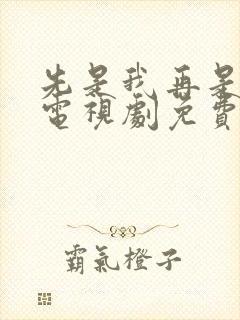 先是我再是
電視劇免費
霸氣橙子